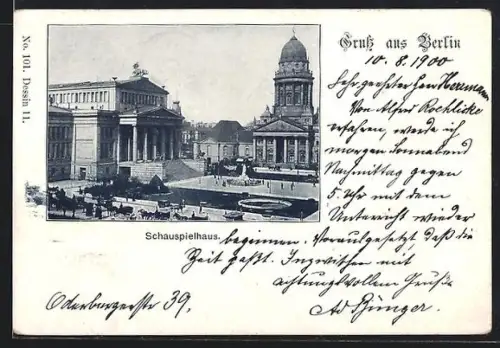 No. 101. Dessin 11.
Gruß aus Berlin
10. 8. 1900
Sehr geehrter Herr Herrmann
Von Alfred Rochlicke
erfahren, werde ich
morgen Sonnabend
Nachmittag gegen
5. Uhr mit dem
Unterricht wieder
Schauspielhaus.
beginnen. Vorausgesetzt, daß die
Zeit paßt. Inzwischen mit
achtungsvollem Gruße
Oderbergerstr 39.
Ad